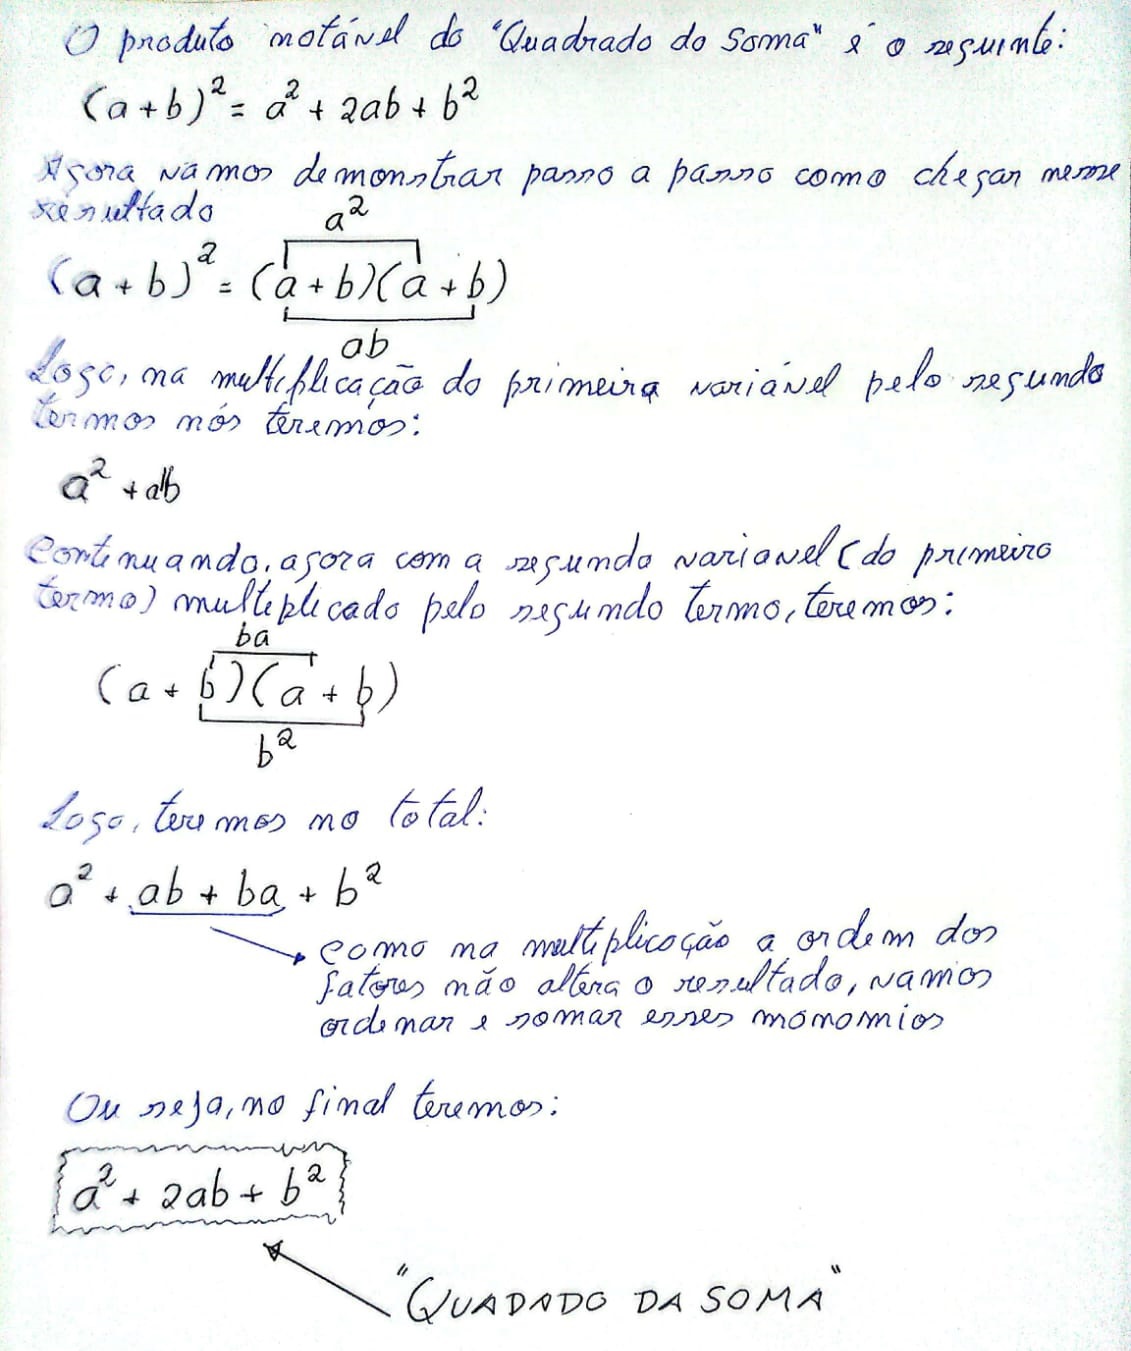 O produto notável do "Quadrado do Soma" é o seguinte:
(a+b)² = a² + 2ab + b²
Agora vamos demonstrar passo a passo como chegar nesse
resultado
a²
(a+b)² = (a+b)(a+b)
ab
Logo, na multiplicação do primeira variável pelo segundo
termos nós teremos:
a² + ab
Continuando, agora com a segunda variavel (do primeiro
termo) multiplicado pelo segundo termo, teremos:
ba
(a+b)(a+b)
b²
Logo, teremos no total:
a² + ab + ba + b²
como na multiplicação a ordem dos
fatores não altera o resultado, vamos
ordenar e somar esses monomios
Ou seja, no final teremos:
a² + 2ab + b²
"QUADADO DA SOMA"